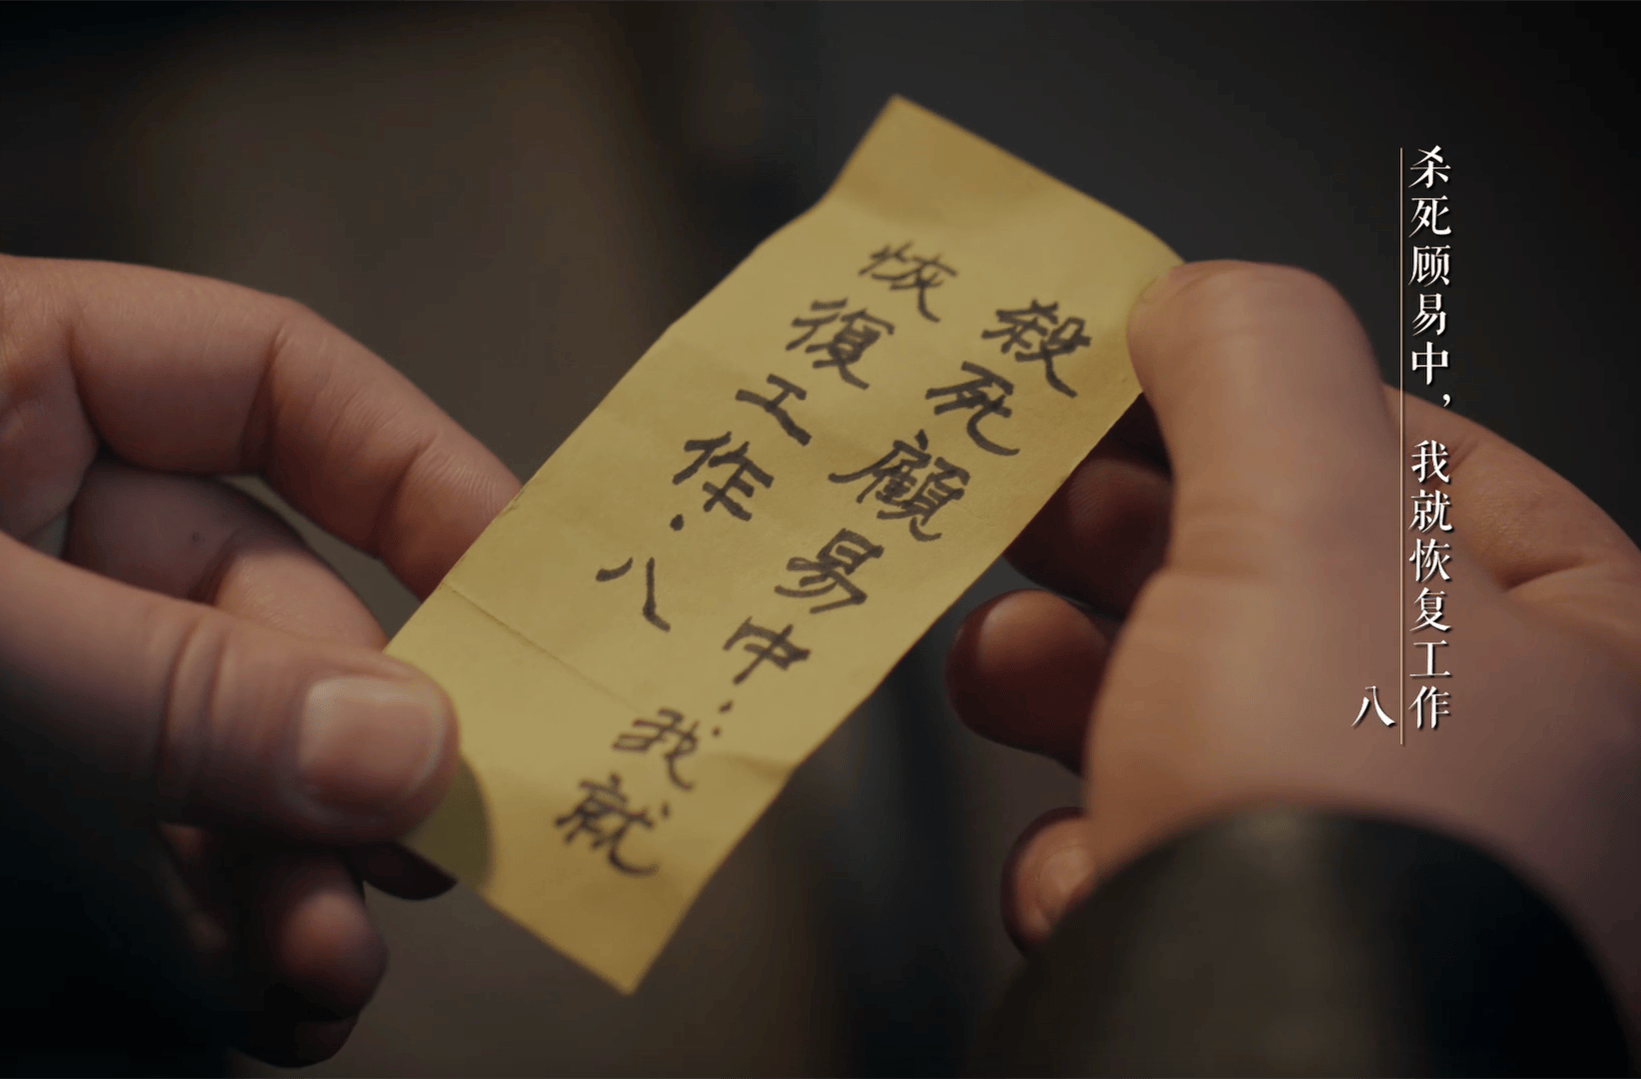 殺死顧易中·我就
恢復工作·八
杀死顾易中，我就恢复工作
八